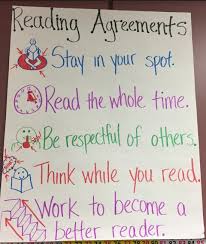 Reading Agreements
Stay in your spot.
Read the whole time.
Be respectful of others.
Think while you read.
Work to become a
better reader.